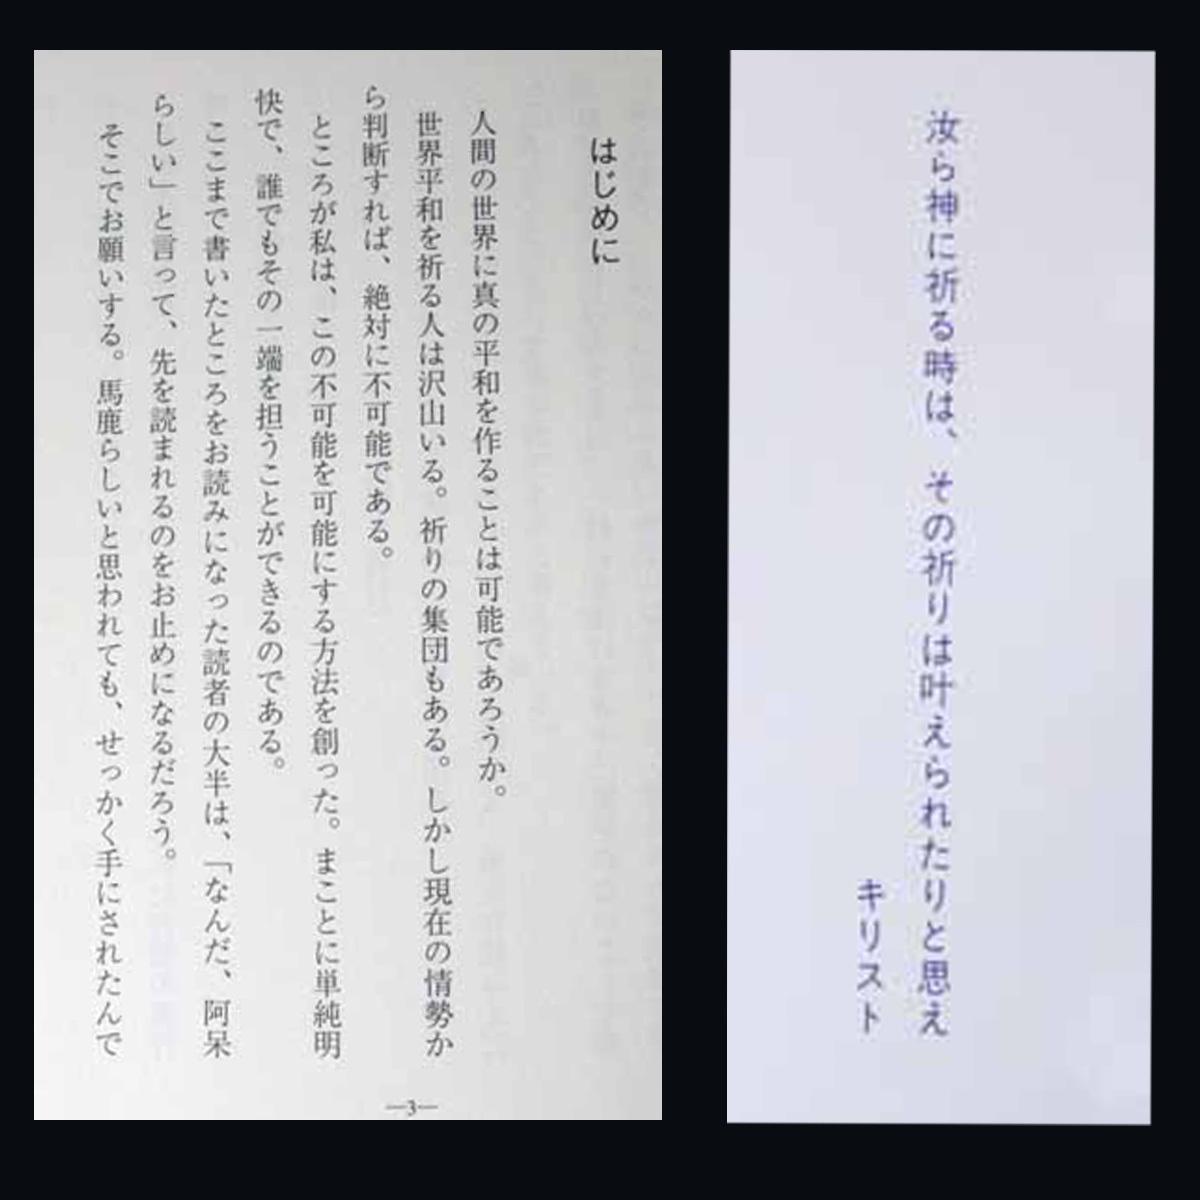 汝ら神に祈る時は、その祈りは叶えられたりと思え
キリスト
はじめに
人間の世界に真の平和を作ることは可能であろうか。
世界平和を祈る人は沢山いる。祈りの集団もある。しかし現在の情勢か
ら判断すれば、絶対に不可能である。
ところが私は、この不可能を可能にする方法を創った。まことに単純明
快で、誰でもその一端を担うことができるのである。
ここまで書いたところをお読みになった読者の大半は、「なんだ、阿呆
らしい」と言って、先を読まれるのをお止めになるだろう。
そこでお願いする。馬鹿らしいと思われても、せっかく手にされたんで
—3—